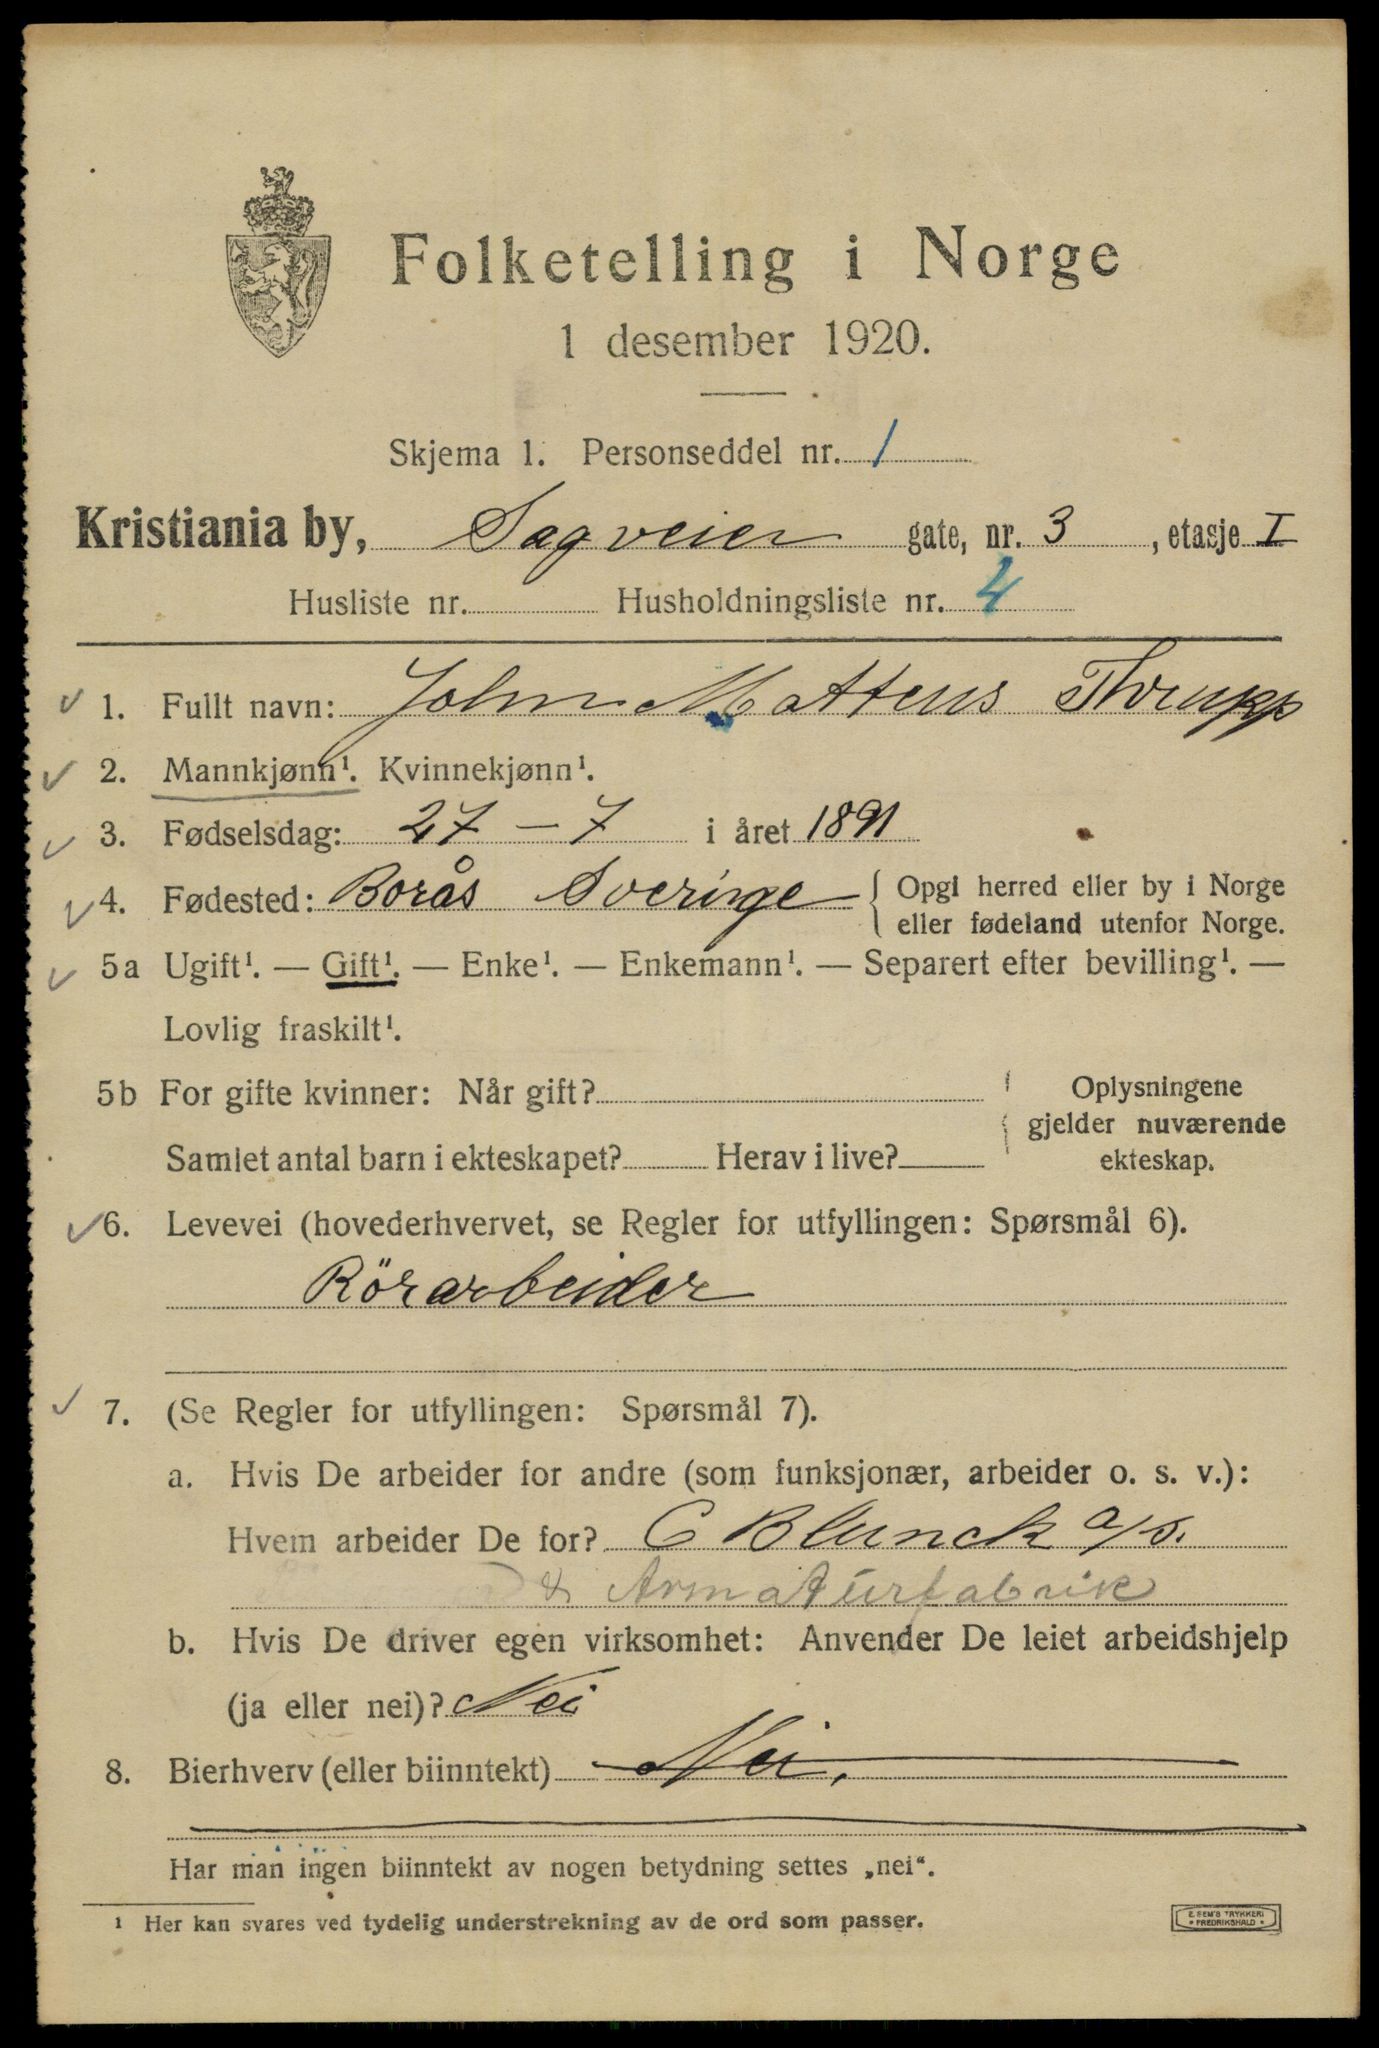 Folketelling i Norge
1 desember 1920.
Skjema 1. Personseddel nr. 1
Kristiania by, Sagveien gate, nr. 3, etasje I
Husliste nr. Husholdningsliste nr. 4
1. Fullt navn: John Mattens Thrupp
2. Mannkjønn¹. Kvinnekjønn¹.
3. Fødselsdag: 27 – 7 i året 1891
4. Fødested: Borås Sverige { Opgi herred eller by i Norge
eller fødeland utenfor Norge.
5a Ugift¹. — Gift¹. — Enke¹. — Enkemann¹. — Separert efter bevilling¹. —
Lovlig fraskilt¹.
5b For gifte kvinner: Når gift?
Samlet antal barn i ekteskapet? Herav i live?
Oplysningene
gjelder nuværende
ekteskap.
6. Levevei (hovederhvervet, se Regler for utfyllingen: Spørsmål 6).
Rörarbeider
7. (Se Regler for utfyllingen: Spørsmål 7).
a. Hvis De arbeider for andre (som funksjonær, arbeider o. s. v.):
Hvem arbeider De for? C Blunck a/s.
& Armaturfabrik
b. Hvis De driver egen virksomhet: Anvender De leiet arbeidshjelp
(ja eller nei)? Nei
8. Bierhverv (eller biinntekt) Nei.
Har man ingen biinntekt av nogen betydning settes „nei“.
¹ Her kan svares ved tydelig understrekning av de ord som passer.
E. SEM'S TRYKKERI
• FREDRIKSHALD •